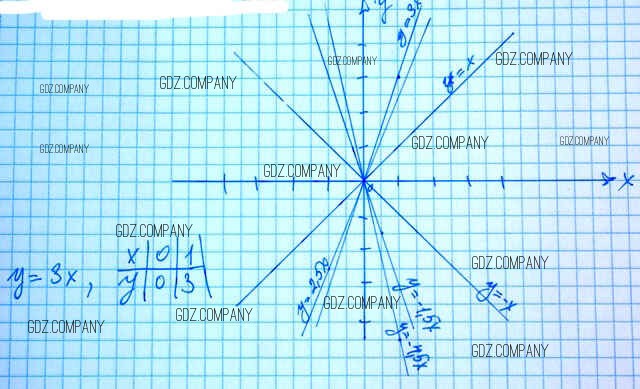 y
y=3x
GDZ.COMPANY
y=x
GDZ.COMPANY
GDZ.COMPANY
GDZ.COMPANY
GDZ.COMPANY
GDZ.COMPANY
GDZ.COMPANY
GDZ.COMPANY
x
0
GDZ.COMPANY
x 0 1
y=3x, y 0 3
y=2,5x
GDZ.COMPANY
y=-x
y=-1,5x
GDZ.COMPANY
GDZ.COMPANY
GDZ.COMPANY
y=-4,5x
GDZ.COMPANY